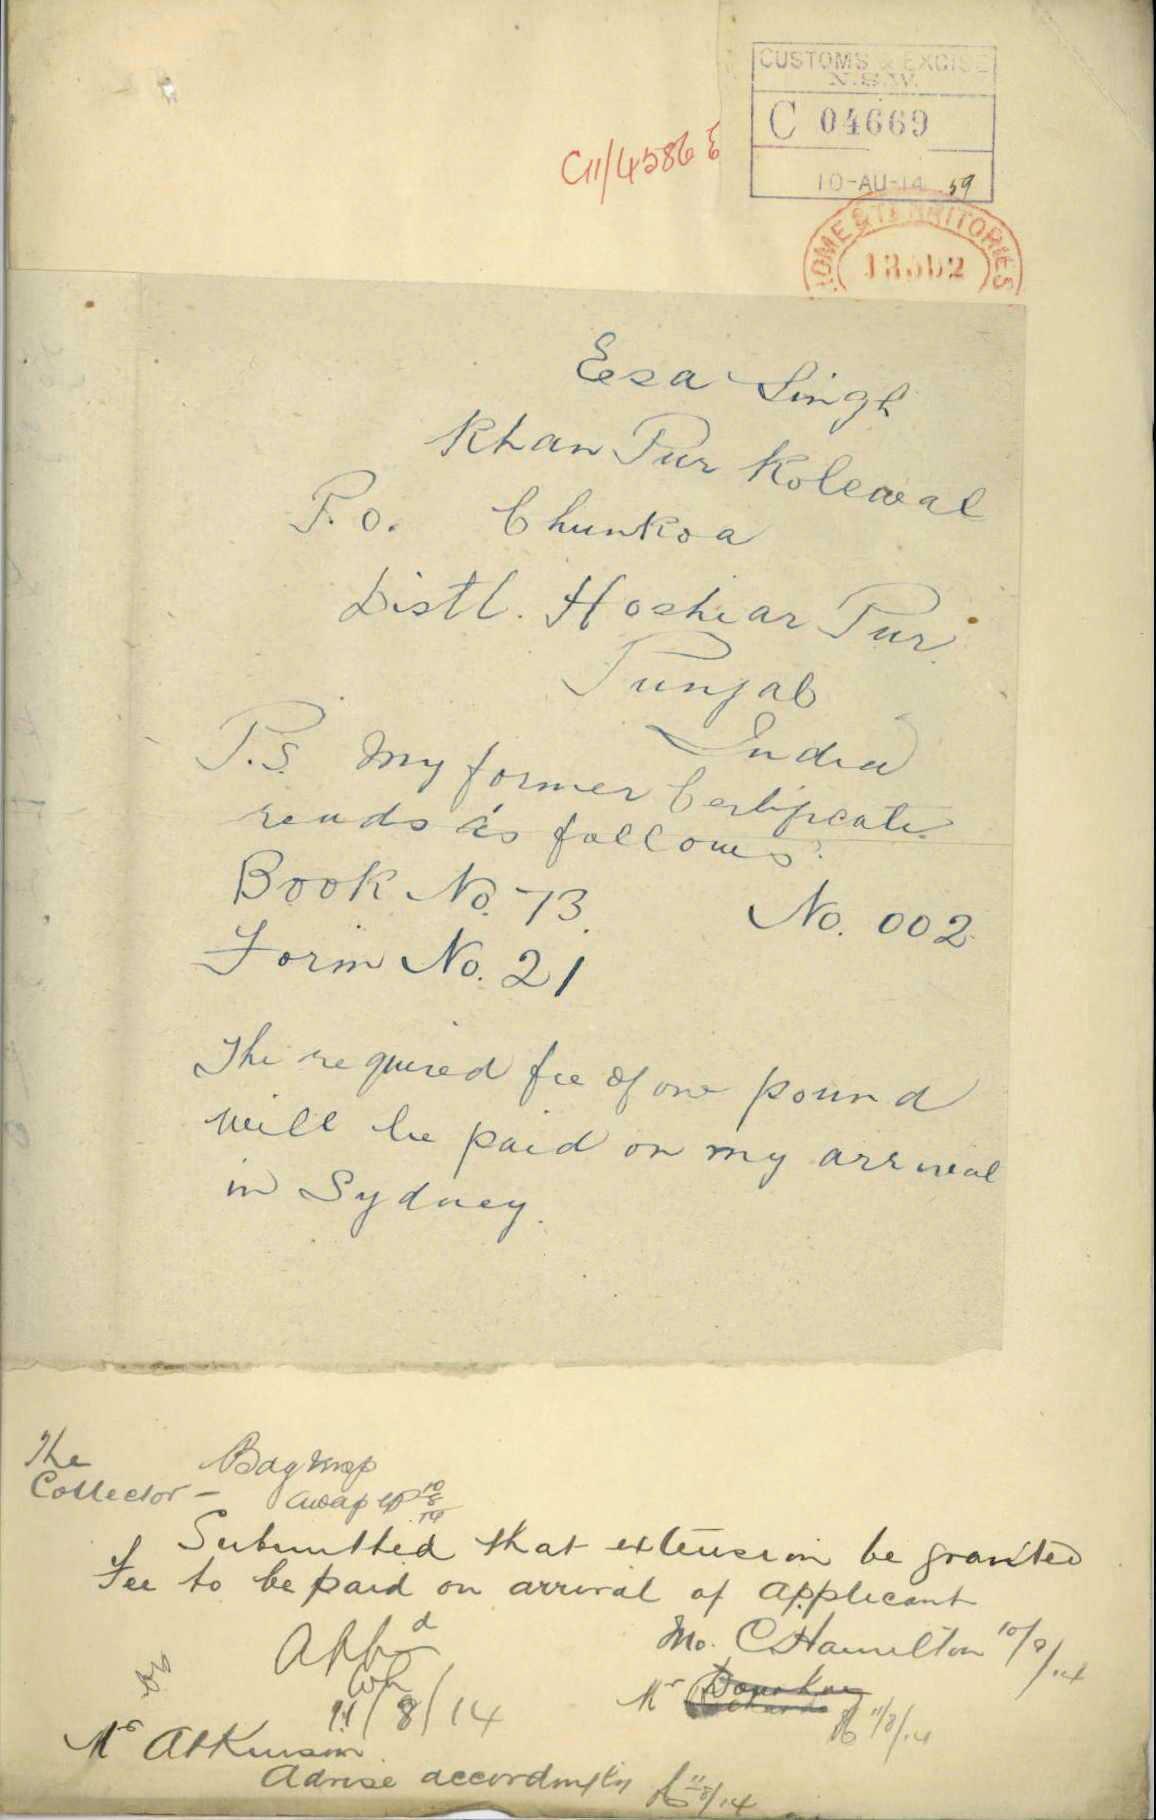 CUSTOMS & EXCISE
N.S.W.
C 04669
10-AU-14 59
C11/4586
HOME & TERRITORIES
Eesa Singh
Khan Pur Kolewal
P.O. Chunkoa
Distt. Hoshiar Pur
Punjab
India
P.S. My former Certificate
reads as follows.
Book No. 73. No. 002
Form No. 21
The required fee of one pound
will be paid on my arrival
in Sydney.
The
Collector -
Submitted that extension be granted
Fee to be paid on arrival of applicant
C. Hamilton 10/8/14
Appd
11/8/14
Mr
11/8/14
Mr Atkinson
Advise accordingly
11/8/14